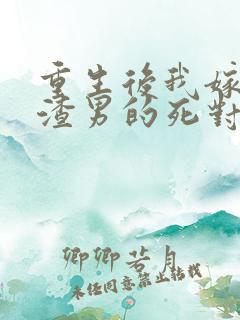 重生後我嫁
渣男的死對
卿卿若月
未經同意禁止轉載